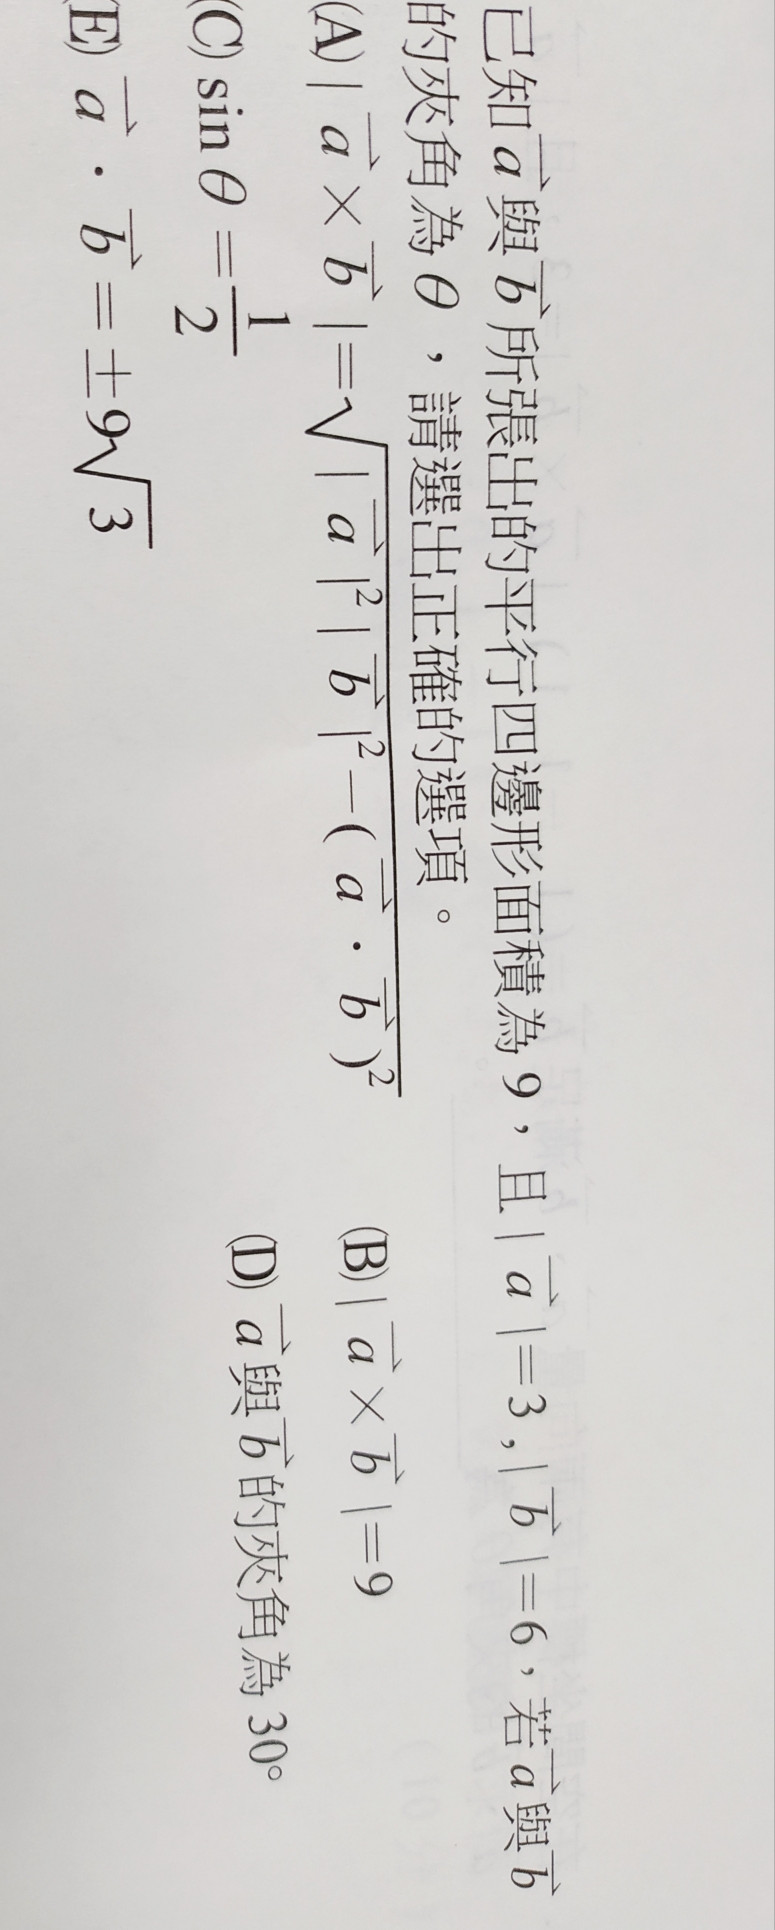 已知 $\vec{a}$ 與 $\vec{b}$ 所張出的平行四邊形面積為 9，且 $|\vec{a}|=3,|\vec{b}|=6$，若 $\vec{a}$ 與 $\vec{b}$
的夾角為 θ，請選出正確的選項。
(A) $|\vec{a}\times\vec{b}|=\sqrt{|\vec{a}|^2|\vec{b}|^2-(\vec{a}\cdot\vec{b})^2}$ (B) $|\vec{a}\times\vec{b}|=9$
(C) $\sin\theta=\frac{1}{2}$ (D) $\vec{a}$ 與 $\vec{b}$ 的夾角為 30°
(E) $\vec{a}\cdot\vec{b}=\pm9\sqrt{3}$